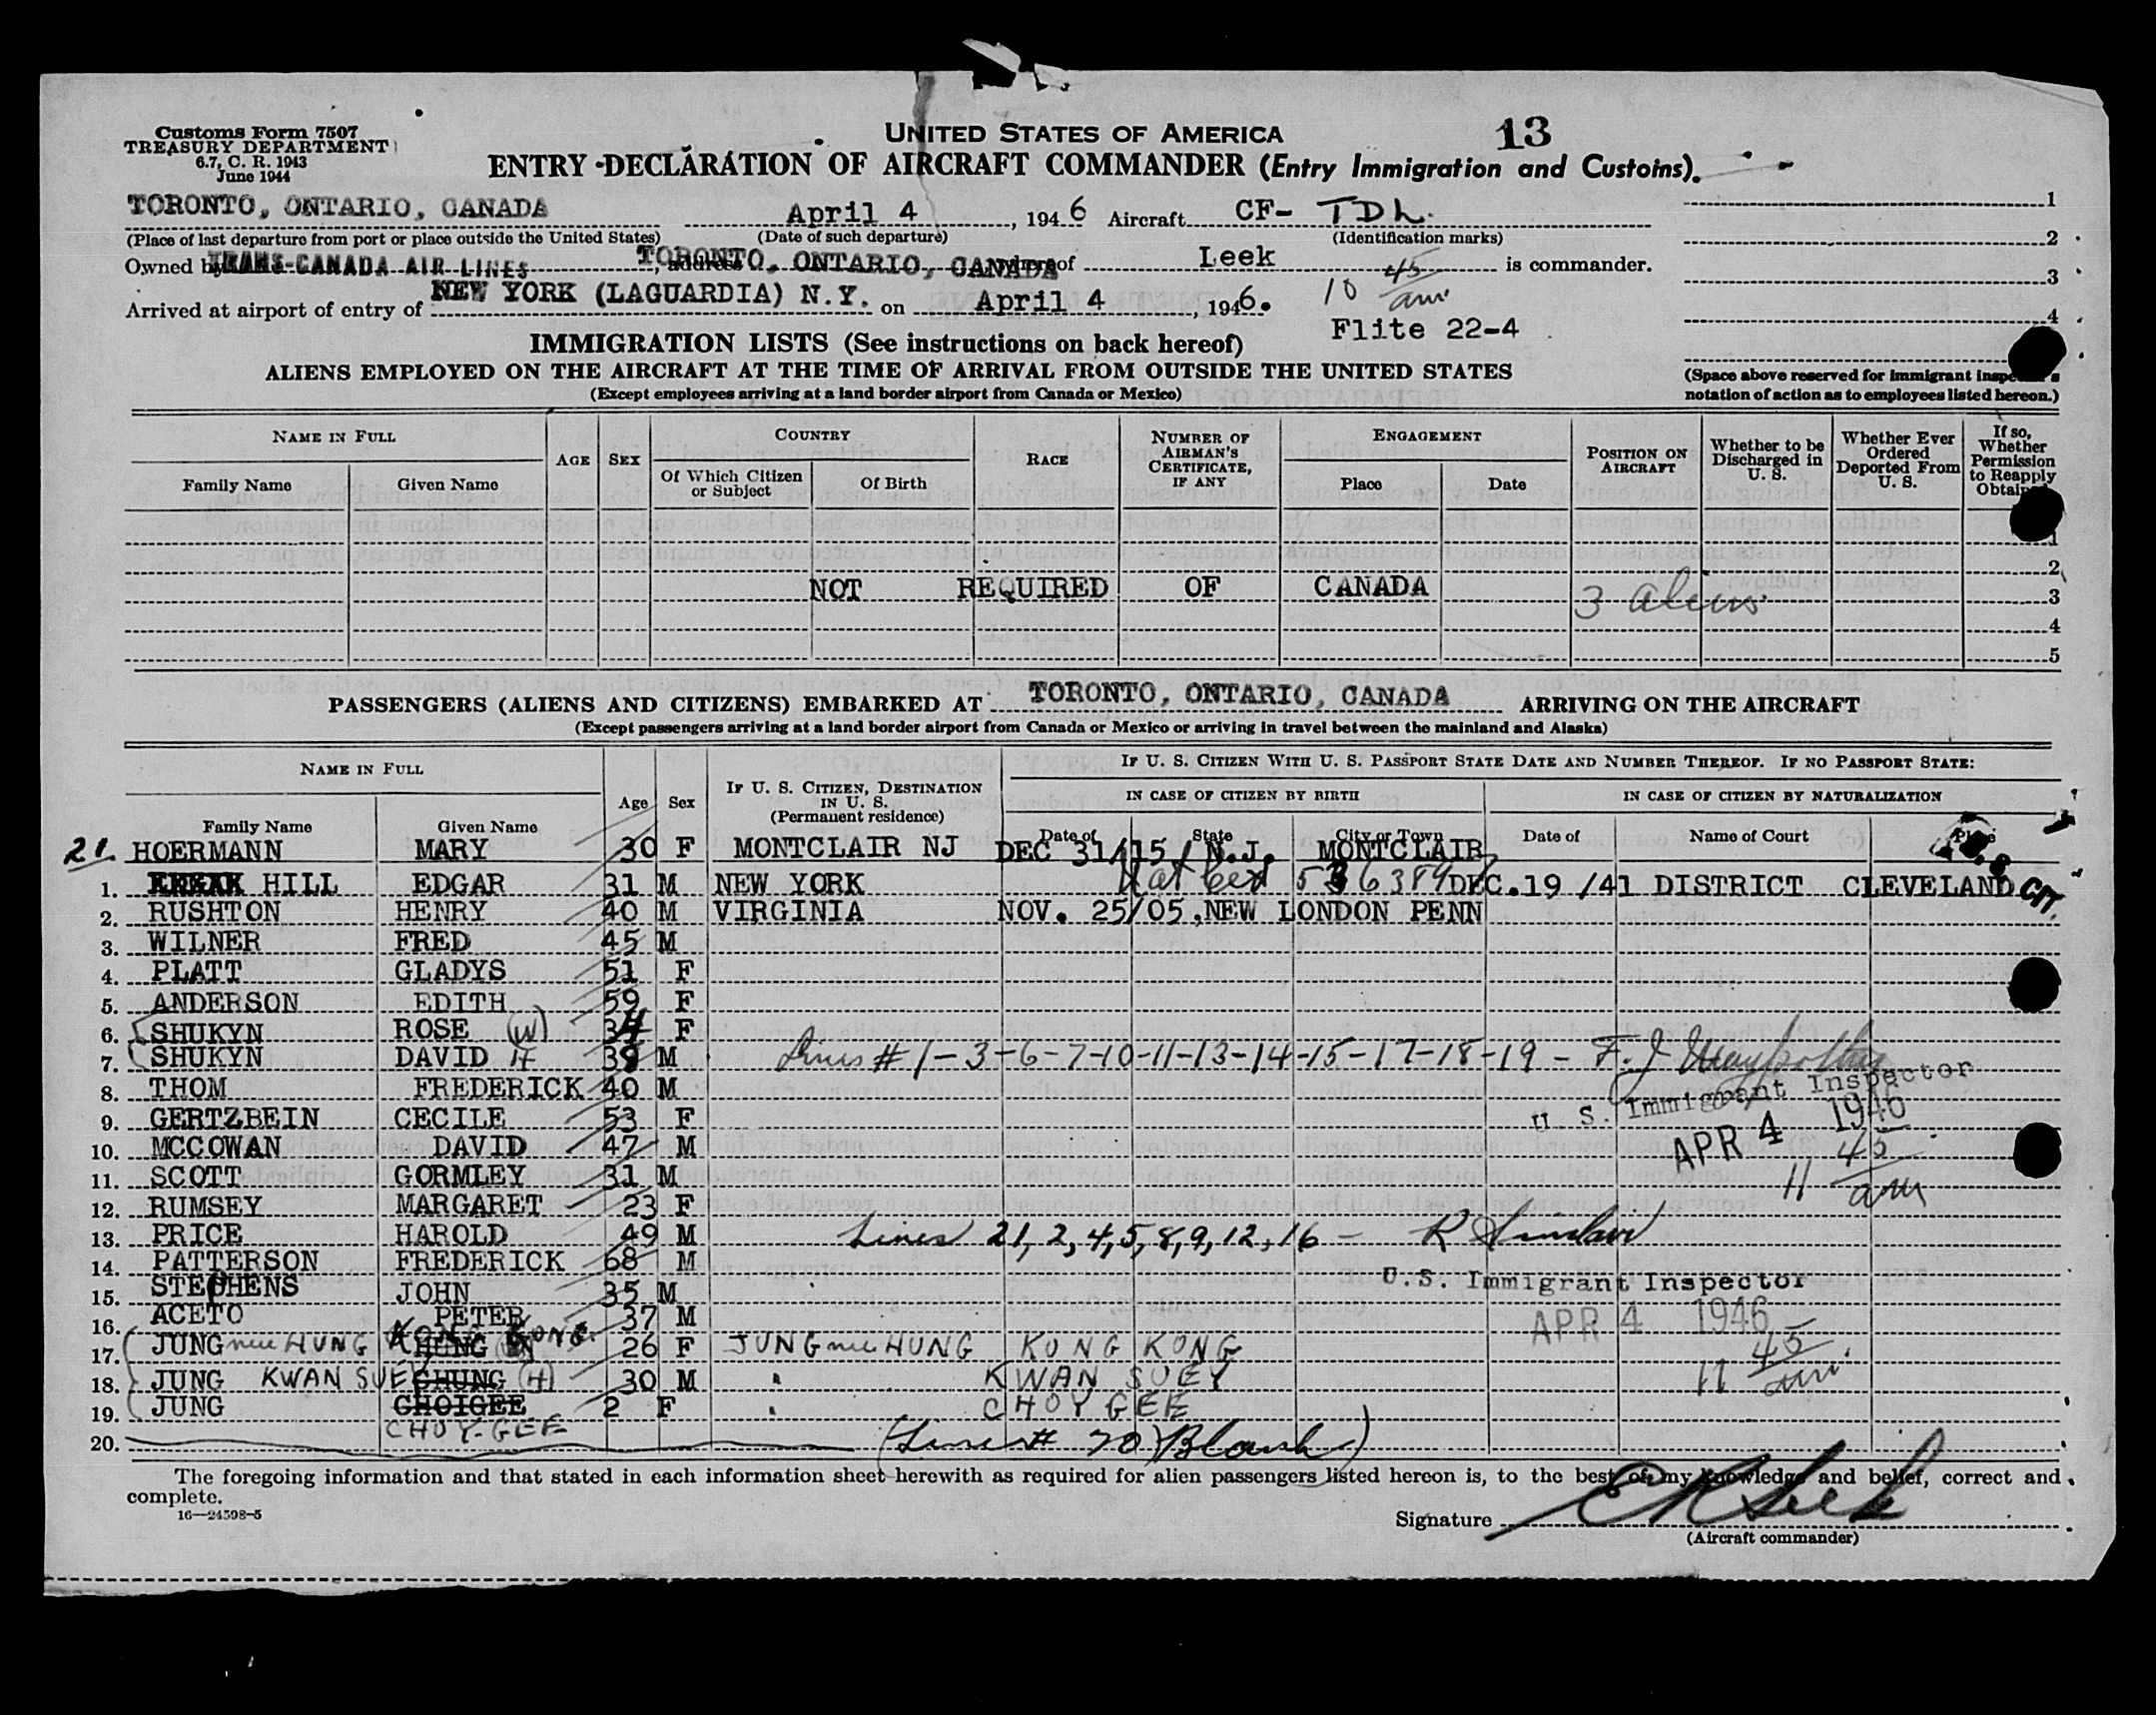 Customs Form 7507
TREASURY DEPARTMENT
6.7, C. R. 1943
June 1944
UNITED STATES OF AMERICA
13
ENTRY DECLARATION OF AIRCRAFT COMMANDER (Entry Immigration and Customs)
TORONTO, ONTARIO, CANADA April 4, 1946 Aircraft CF- TDL. 1
(Place of last departure from port or place outside the United States) (Date of such departure) (Identification marks) 2
Owned by TRANS-CANADA AIR LINES, address TORONTO, ONTARIO, CANADA whereof Leek is commander. 3
Arrived at airport of entry of NEW YORK (LAGUARDIA) N.Y. on April 4, 1946. 10 45 am. 4
Flite 22-4
IMMIGRATION LISTS (See instructions on back hereof)
ALIENS EMPLOYED ON THE AIRCRAFT AT THE TIME OF ARRIVAL FROM OUTSIDE THE UNITED STATES
(Except employees arriving at a land border airport from Canada or Mexico)
(Space above reserved for immigrant inspector's
notation of action as to employees listed hereon.)
NAME IN FULL AGE SEX COUNTRY RACE NUMBER OF AIRMAN'S CERTIFICATE, IF ANY ENGAGEMENT POSITION ON AIRCRAFT Whether to be Discharged in U. S. Whether Ever Ordered Deported From U. S. If so, Whether Permission to Reapply Obtained
Family Name Given Name Of Which Citizen or Subject Of Birth Place Date
1
2
NOT REQUIRED OF CANADA 3 aliens 3
4
5
PASSENGERS (ALIENS AND CITIZENS) EMBARKED AT TORONTO, ONTARIO, CANADA ARRIVING ON THE AIRCRAFT
(Except passengers arriving at a land border airport from Canada or Mexico or arriving in travel between the mainland and Alaska)
NAME IN FULL Age Sex IF U. S. CITIZEN, DESTINATION IN U. S. (Permanent residence) IF U. S. CITIZEN WITH U. S. PASSPORT STATE DATE AND NUMBER THEREOF. IF NO PASSPORT STATE:
IN CASE OF CITIZEN BY BIRTH IN CASE OF CITIZEN BY NATURALIZATION
Family Name Given Name Date of State City or Town Date of Name of Court Place
21. HOERMANN MARY 30 F MONTCLAIR NJ DEC 31/15/ N.J. MONTCLAIR U.S. CIT.
1. HILL EDGAR 31 M NEW YORK Nat Cert DEC.19 /41 DISTRICT CLEVELAND
2. RUSHTON HENRY 40 M VIRGINIA NOV. 25/05, NEW LONDON PENN
3. WILNER FRED 45 M
4. PLATT GLADYS 51 F
5. ANDERSON EDITH 59 F
6. SHUKYN ROSE (W) 34 F
7. SHUKYN DAVID H 39 M Lines # 1-3-6-7-10-11-13-14-15-17-18-19 - F. J.
8. THOM FREDERICK 40 M U. S. Immigrant Inspector
9. GERTZBEIN CECILE 53 F APR 4 1946
10. MCCOWAN DAVID 47 M
11. SCOTT GORMLEY 31 M 11 45 am
12. RUMSEY MARGARET 23 F
13. PRICE HAROLD 49 M Lines 21, 2, 4, 5, 8, 9, 12, 16 - R Sinclair
14. PATTERSON FREDERICK 68 M
15. STEPHENS JOHN 35 M U.S. Immigrant Inspector
16. ACETO PETER 37 M APR 4 1946
17. JUNG nee HUNG KONG KONG 26 F JUNG nee HUNG KONG KONG 11 45 am.
18. JUNG KWAN SUEY CHUNG (H) 30 M " KWAN SUEY
19. JUNG CHOIGEE 2 F " CHOY GEE
CHOY-GEE
20. (Line # 20 Blank)
The foregoing information and that stated in each information sheet herewith as required for alien passengers listed hereon is, to the best of my knowledge and belief, correct and
complete.
16—24598-5
Signature
(Aircraft commander)